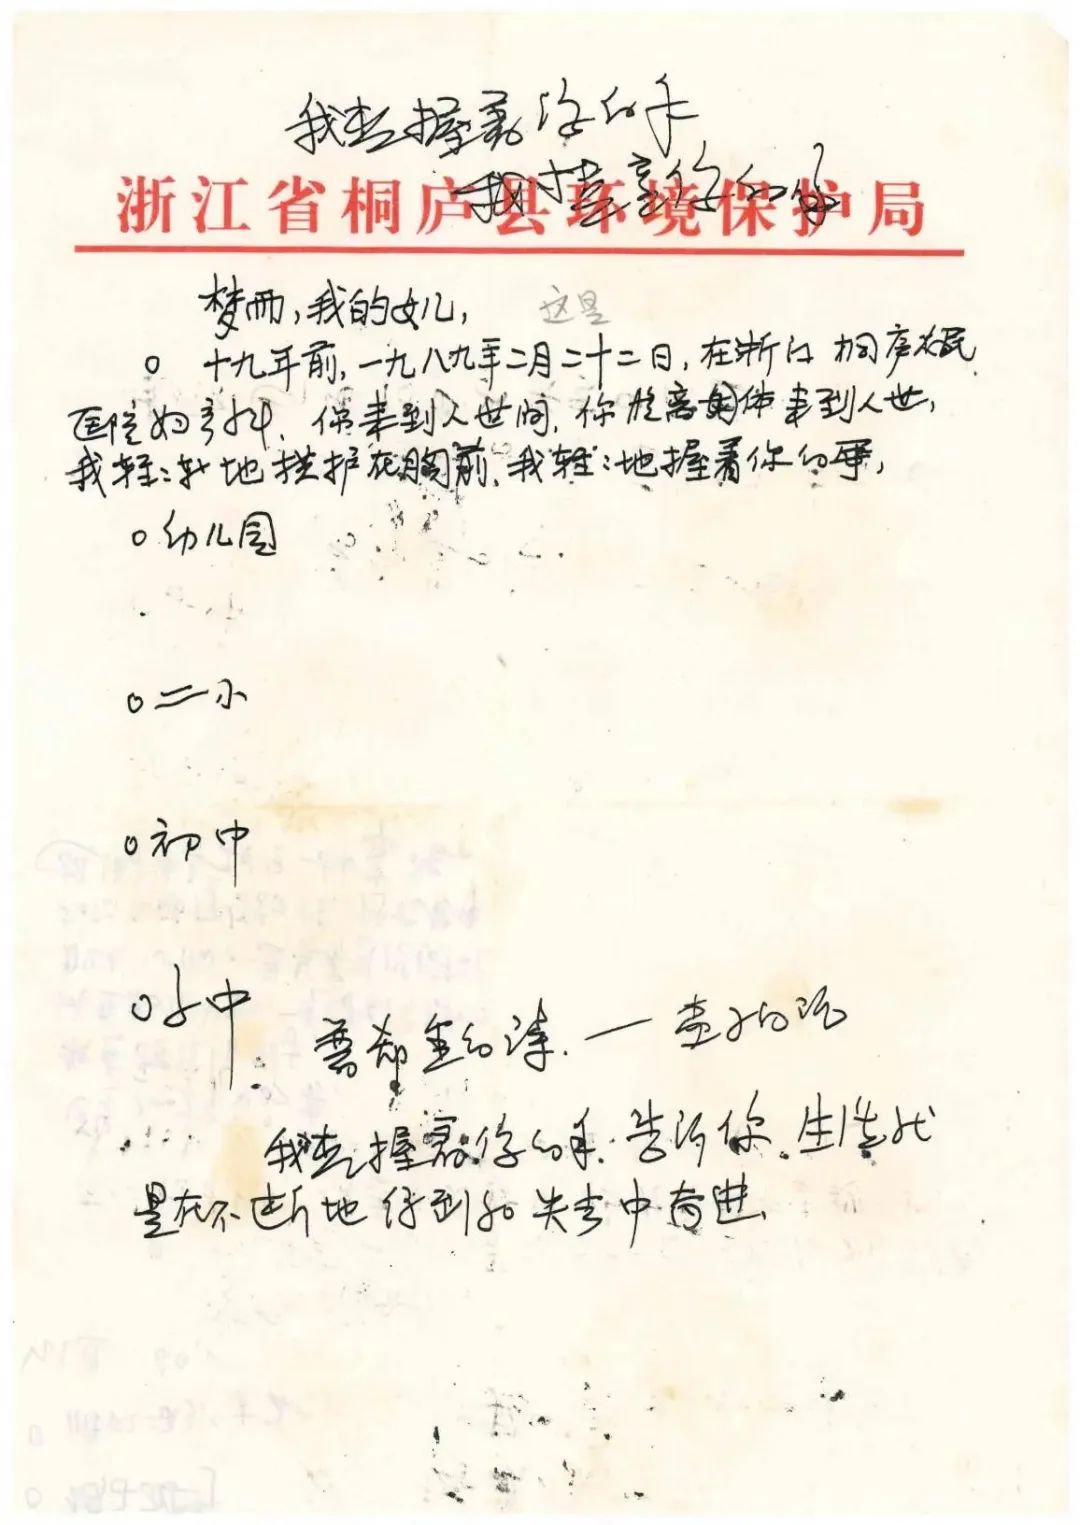 我握着你的手
我握着你的手
浙江省桐庐县环境保护局
梦雨,我的女儿,
这是
○ 十九年前,一九八九年二月二十二日,在浙江桐庐人民
医院妇产科,你来到人世间,你脱离母体来到人世,
我轻轻地拱护在胸前,我轻轻地握着你的手,
○ 幼儿园
○ 二小
○ 初中
○ 中
我握着你的手,告诉你,生活就
是在不断地得到和失去中奋进